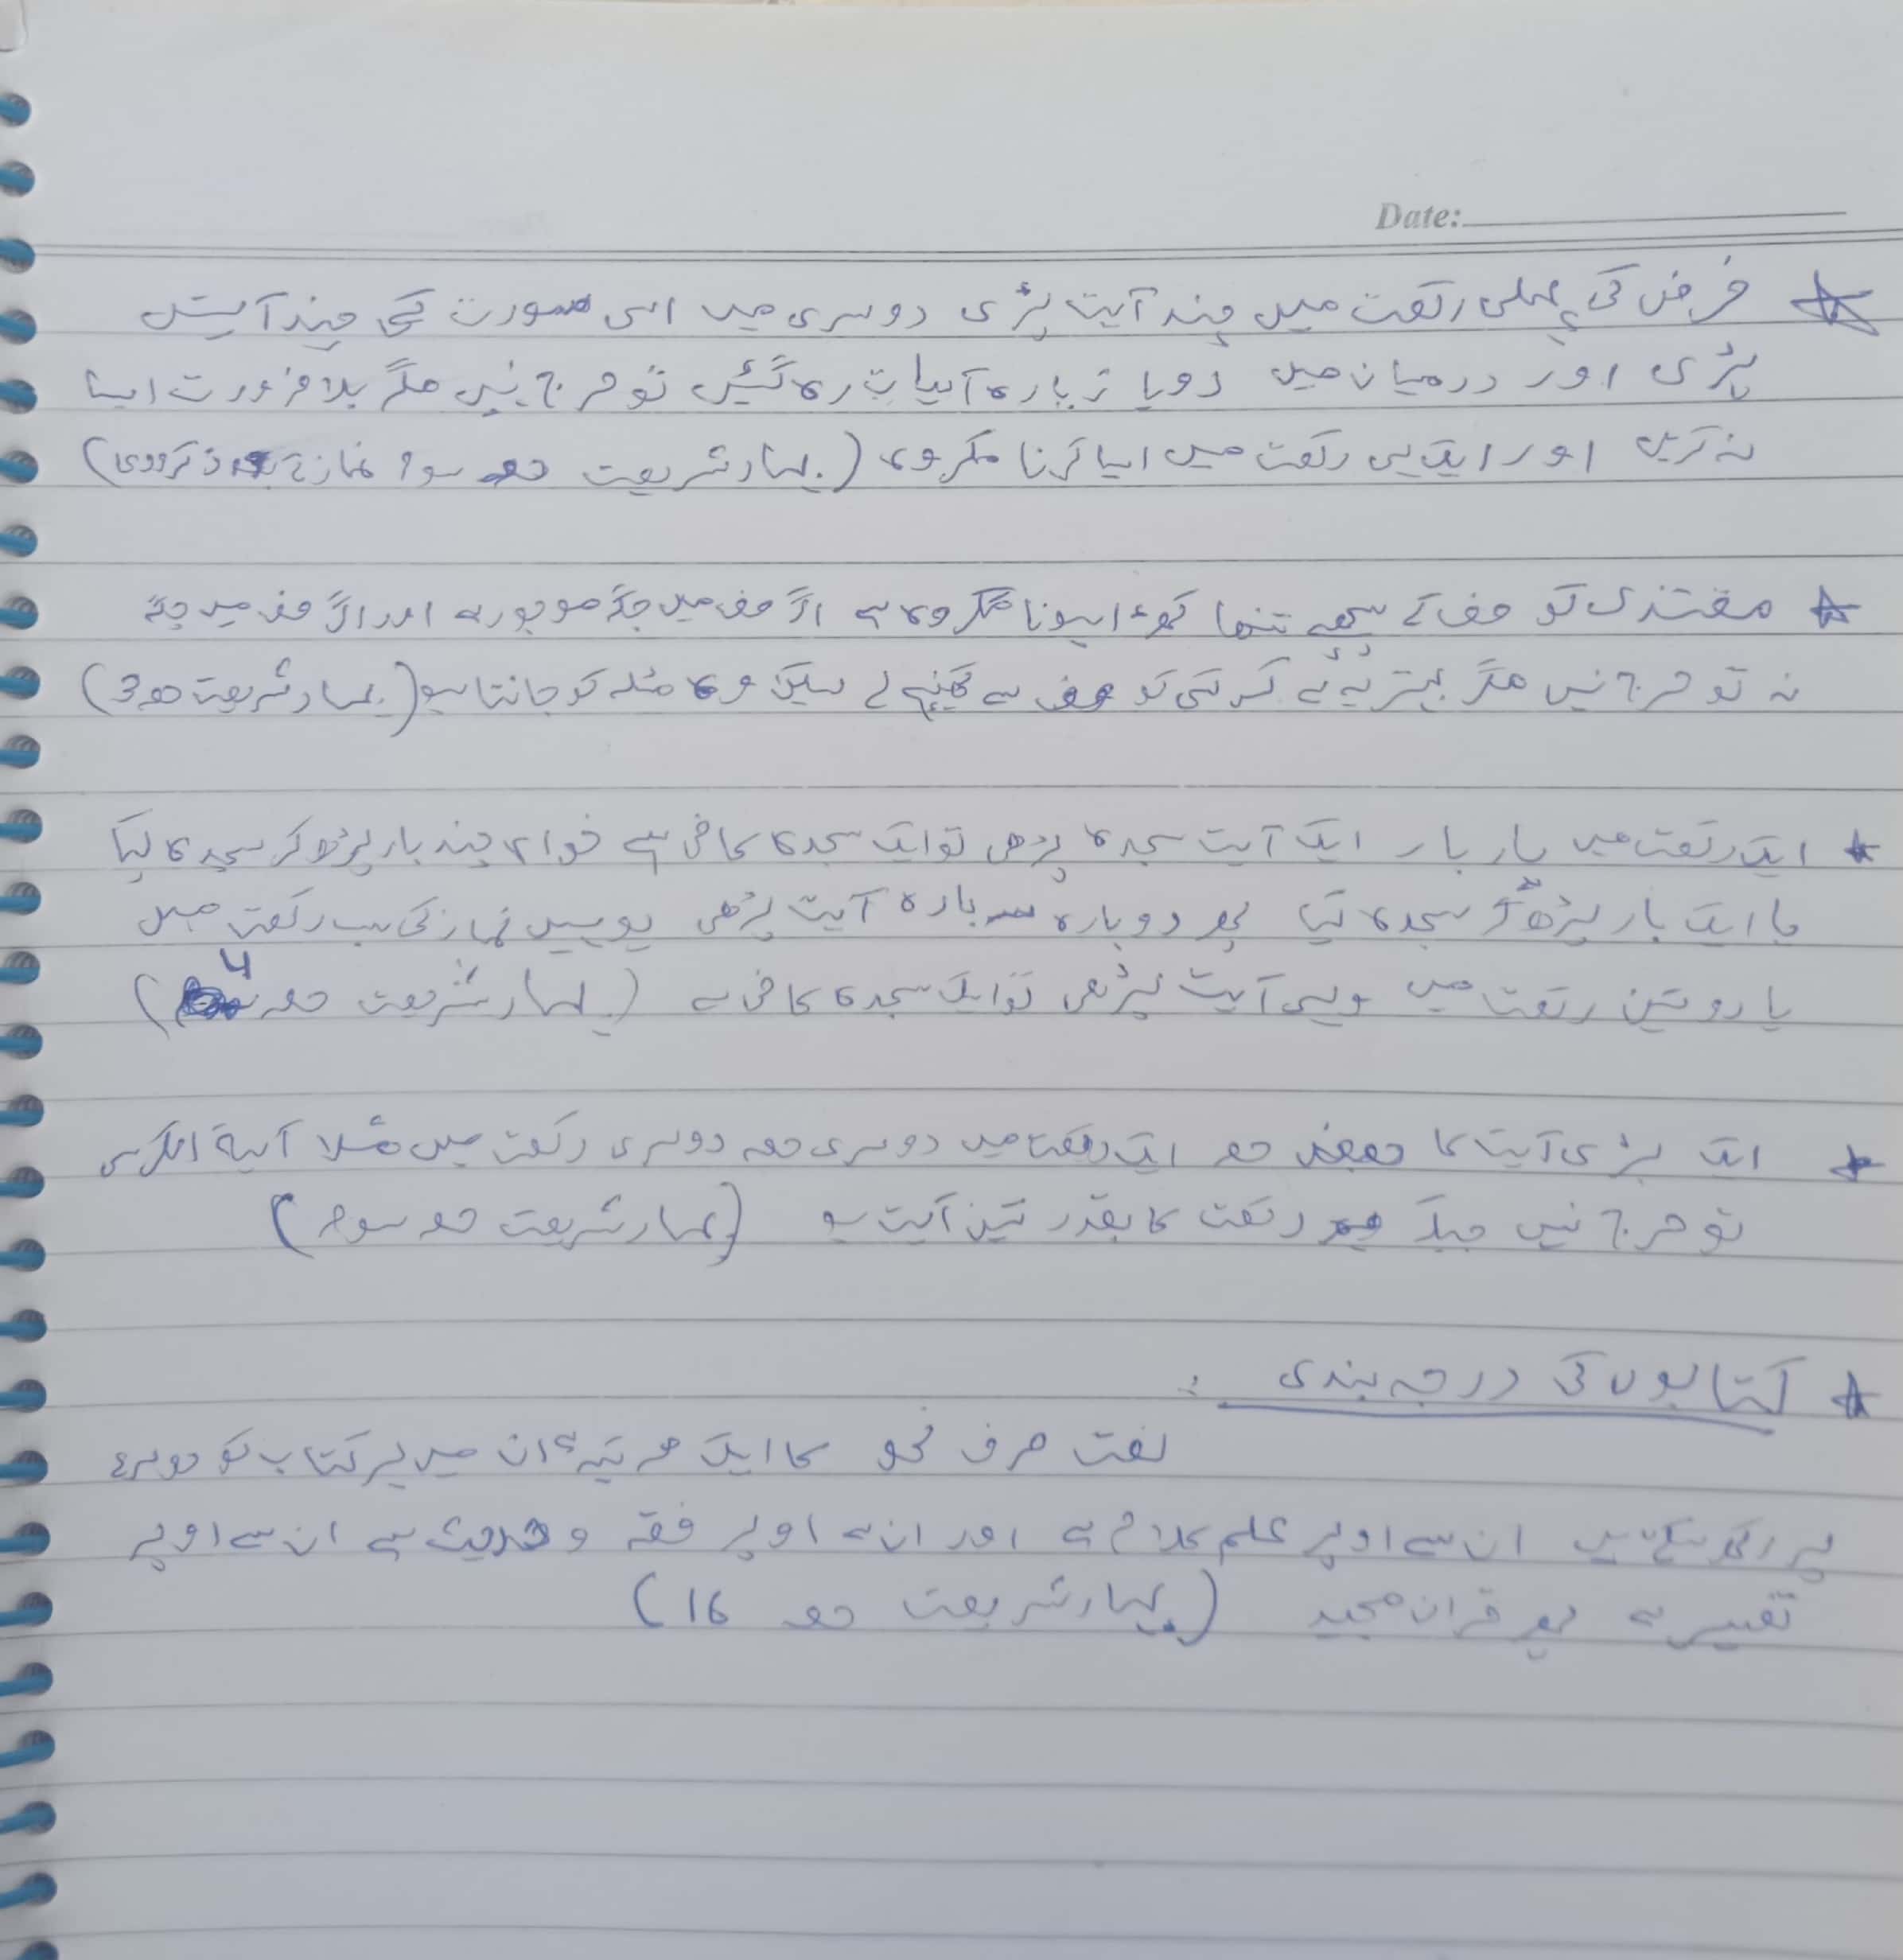 Date:
☆ فرض کی پہلی رکعت میں چند آیت پڑی دوسری میں اسی صورت کی چند آیتیں
پڑی اور درمیان میں دو یا زیادہ آیات رہ گئیں تو حرج نہیں مگر بلا ضرورت ایسا
نہ کریں اور ایک ہی رکعت میں ایسا کرنا مکروہ (بہار شریعت حصہ سوم نماز
☆ مقتدی کو صف کے پیچھے تنہا کھڑا ہونا مکروہ ہے اگر صف میں جگہ موجود ہے اور اگر صف میں جگہ
نہ تو حرج نہیں مگر بہتر یہ ہے کہ کسی کو صف سے کھینچ لے لیکن وہ مسئلہ کو جانتا ہو (بہار شریعت حصہ 3)
☆ ایک رکعت میں بار بار ایک آیت سجدہ پڑھی تو ایک سجدہ کافی ہے خواہ چند بار پڑھ کر سجدہ کیا
یا ایک بار پڑھ کر سجدہ کیا پھر دوبارہ سہ بارہ آیت پڑھی یوہیں نماز کی سب رکعت میں
یا دو تین رکعت میں وہی آیت پڑھی تو ایک سجدہ کافی ہے (بہار شریعت حصہ 4)
☆ ایک بڑی آیت کا حصہ ایک رکعت میں دوسری حصہ دوسری رکعت میں مثلا آیۃ الکرسی
تو حرج نہیں جبکہ ہر رکعت کا بقدر تین آیت ہو (بہار شریعت حصہ سوم)
☆ کتابوں کی درجہ بندی :
لغت صرف نحو کا ایک مرتبہ ہے ان میں ہر کتاب کو دوسرے
پر رکھ سکتے ہیں ان سے اوپر علم کلام ہے اور ان سے اوپر فقہ و حدیث ہے ان سے اوپر
تفسیر ہے پھر قران مجید (بہار شریعت حصہ 16)